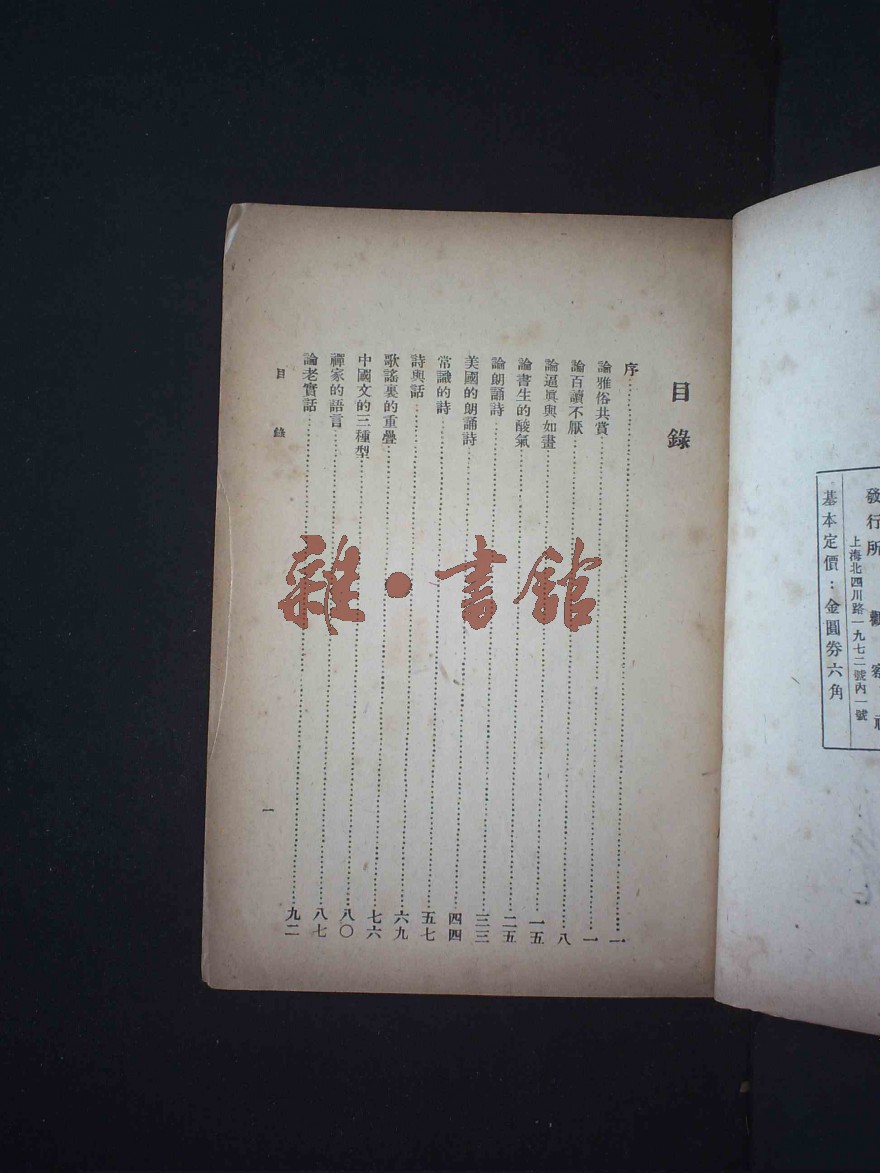 發行所 觀察社
上海北四川路一九七二號內一號
基本定價：金圓券六角
目錄
序⋯⋯一
論雅俗共賞⋯⋯一
論百讀不厭⋯⋯八
論逼眞與如畫⋯⋯一五
論書生的酸氣⋯⋯二五
論朗誦詩⋯⋯三三
美國的朗誦詩⋯⋯四四
常識的詩⋯⋯五七
詩與話⋯⋯六九
歌謠裏的重疊⋯⋯七六
中國文的三種型⋯⋯八〇
禪家的語言⋯⋯八七
論老實話⋯⋯九二
目錄
一
雜·書館